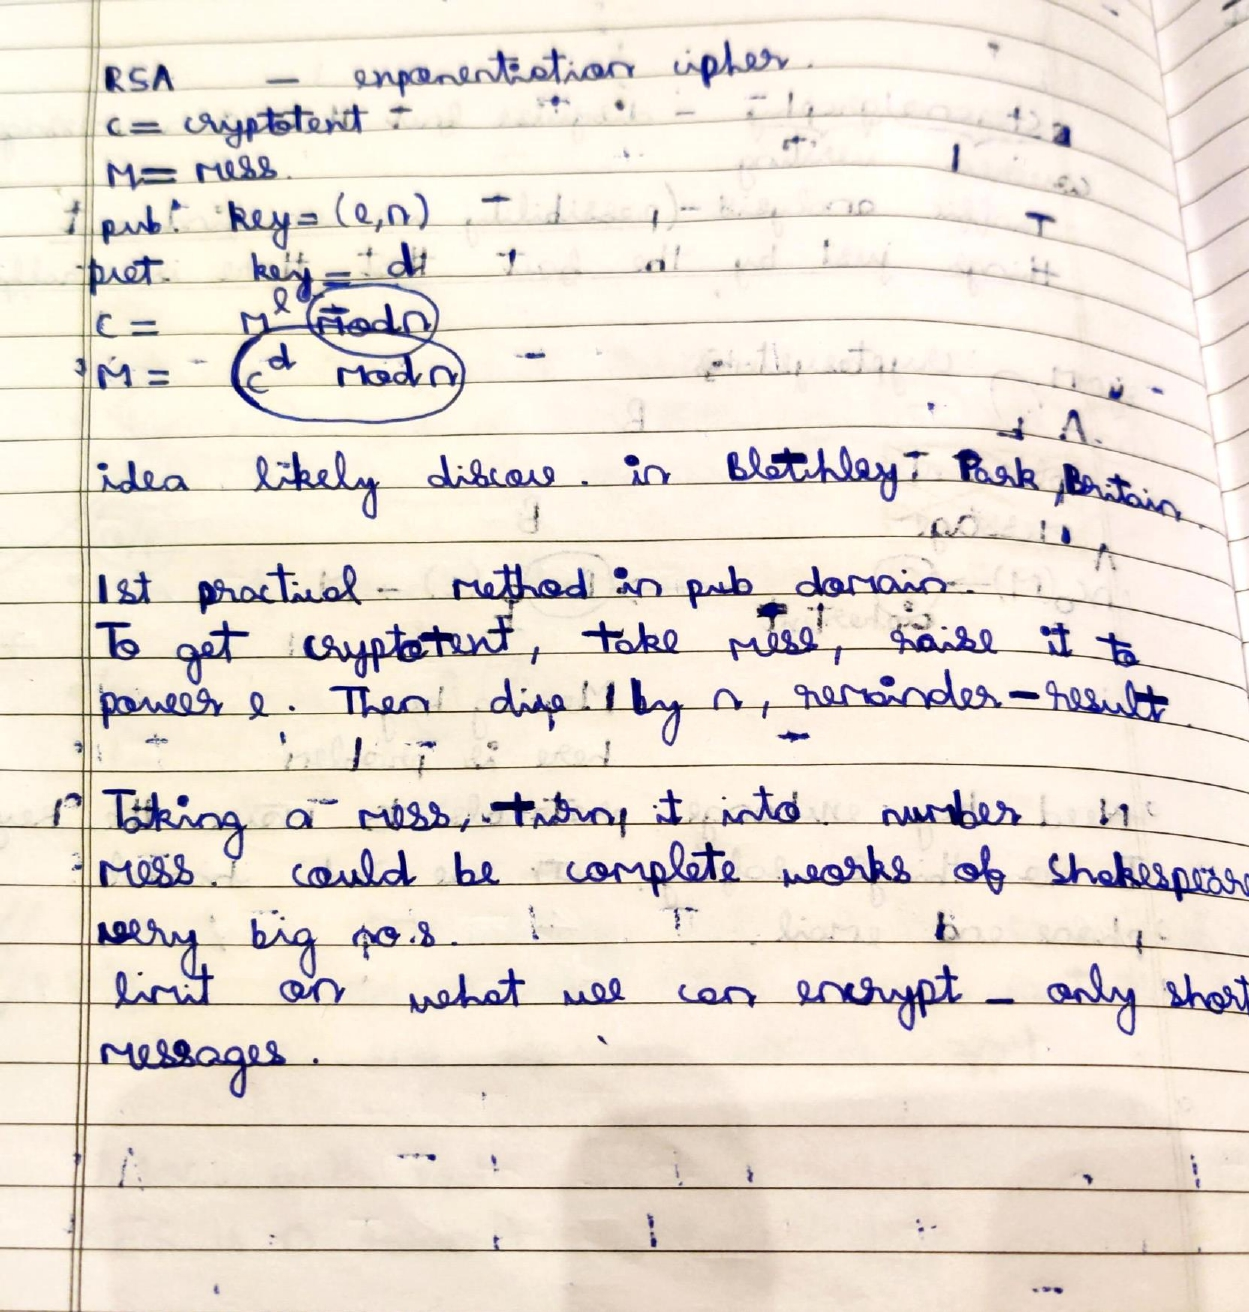 RSA — exponentiation cipher.
C = cryptotext
M = mess.
pub. key = (e,n)
key = d
C = M^e mod n
M = C^d mod n
idea likely discov. in Bletchley Park, Britain.
1st practical method in pub domain.
To get cryptotext, take mess, raise it to
power e. Then by n, remainder – result.
Taking a mess, turn it into number
mess. could be complete works of Shakespeare
very big no.s.
limit on what we can encrypt – only short
messages.